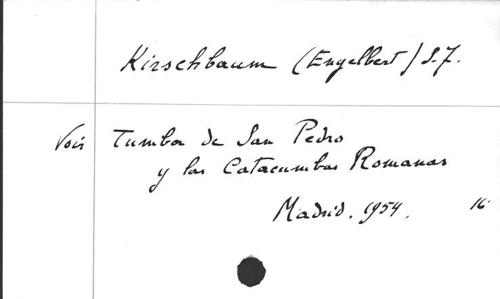 Kirschbaum (Engelbert) S.J.
Voir Tumba de San Pedro
y las Catacumbas Romanas
Madrid. 1954. 16